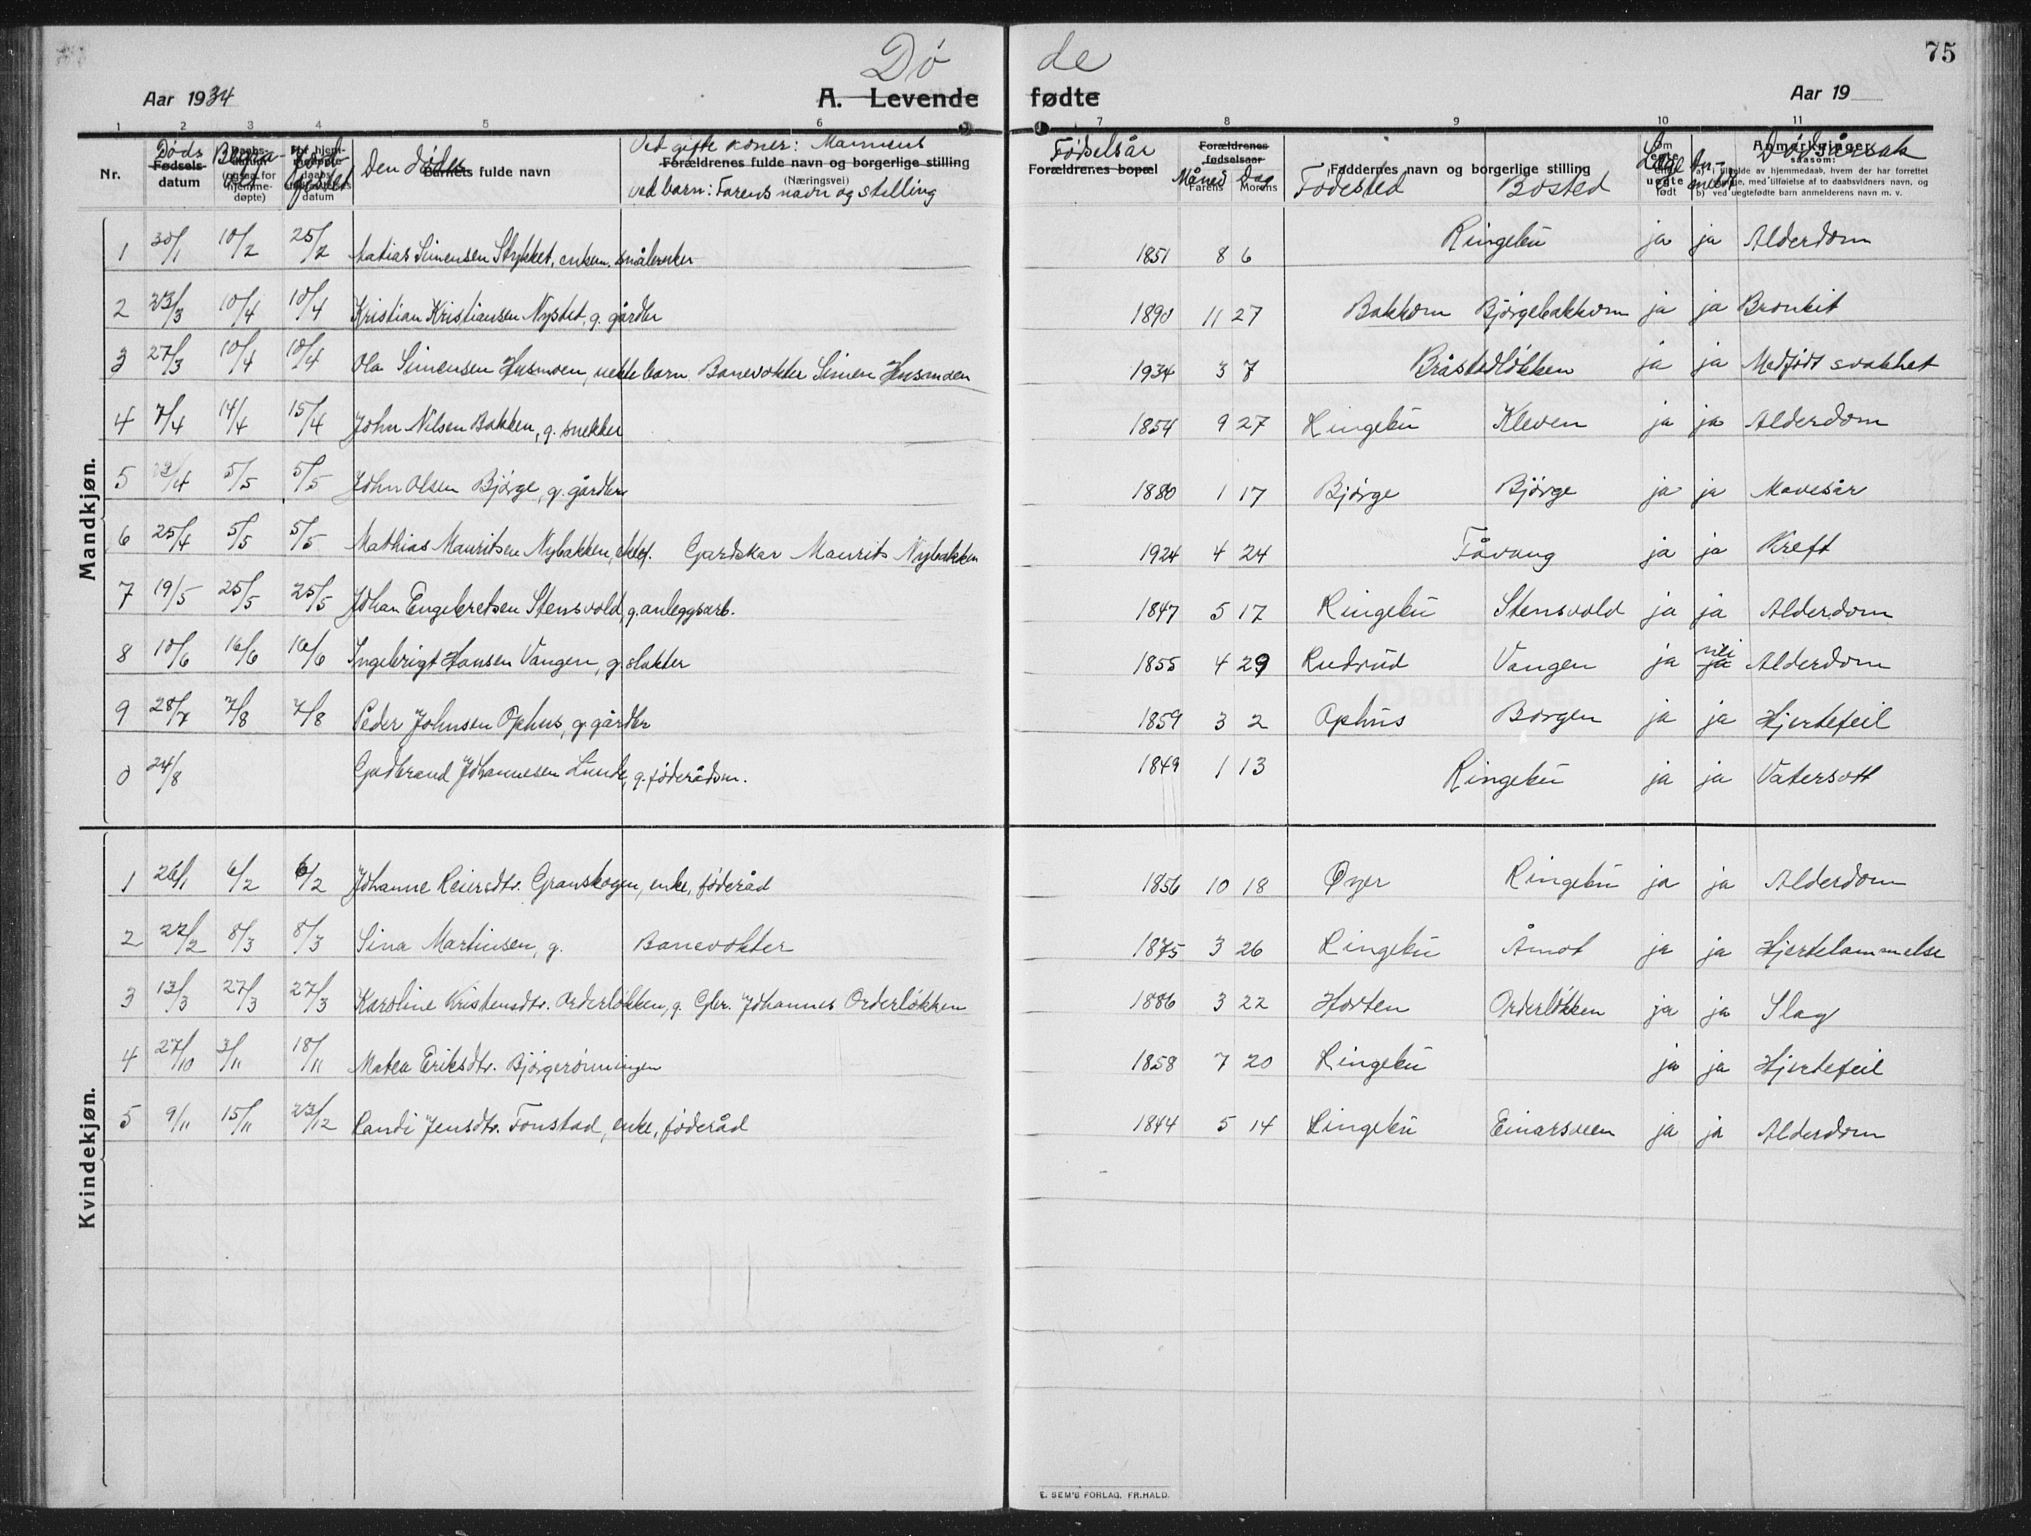 Dø de
75
Aar 1934 A. Levende fødte Aar 19
1 2 3 4 5 6 7 8 9 10 11
Nr. Døds Fødsels-datum Begra- Den døde Barnets fulde navn Ved gifte koner: Mannens Forældrenes fulde navn og borgerlige stilling (Næringsvei) ved barn: Farens navn og stilling Fødselsår Forældrenes bopæl Forældrenes fødselsaar Måned Dag Farens Morens Faddernes navn og borgerlige stilling Fødested Bosted Om egte eller uegte født Læge An- meldt Anmerkninger saasom: Dødsårsak
a) i tilfælde av hjemmedaab, hvem der har forrettet
b) ved uegtefødte barn anmelderens navn m. v.
Mandkjøn.
1 30/1 10/2 25/2 Matias Simensen Stykket, enkem. småbruker 1851 8 6 Ringebu ja ja Alderdom
2 23/3 10/4 10/4 Kristian Kristiansen Nystet, g. gårdbr 1890 11 27 Bakkom Bjørgebakkom ja ja Bronkit
3 27/3 10/4 10/4 Ola Simensen Husmoen, ekte barn Banevokter Simen Husmoen 1934 3 7 Bråstadløkken ja ja Medfødt svakhet
4 7/4 14/4 15/4 John Nilsen Bakken, g. snekker 1854 9 27 Ringebu Kleven ja ja Alderdom
5 /4 5/5 5/5 John Olsen Bjørge, g. gårdbr 1880 1 17 Bjørge Bjørge ja ja Mavesår
6 25/4 5/5 5/5 Mathias Mauritsen Nybakken, ektef. Gardskar Maurits Nybakken 1924 4 24 Fåvang ja ja Kreft
7 19/5 25/5 25/5 Johan Engebretsen Stensvold, g. anleggsarb. 1847 5 17 Ringebu Stensvold ja ja Alderdom
8 10/6 16/6 16/6 Ingebrigt Hansen Vangen, g. slakter 1855 4 29 Rudsrud Vangen ja nei ja Alderdom
9 28/7 7/8 7/8 Peder Johnsen Ophus, g. gårdbr 1859 3 2 Ophus Borgen ja ja Hjertefeil
0 24/8 Gudbrand Johannesen Lunde, g. føderådsm. 1849 1 13 Ringebu ja ja Vatersott
Kvindekjøn.
1 26/1 6/2 6/2 Johanne Reiersdtr. Granskogen, enke, føderåd 1856 10 18 Øyer Ringebu ja ja Alderdom
2 22/2 8/3 8/3 Sina Martinsen, g. Banevokter 1875 3 26 Ringebu Åmot ja ja Hjertelammelse
3 13/3 27/3 27/3 Karoline Kristensdtr. Orderløkken, g. Gbr. Johannes Orderløkken 1886 3 22 Horten Orderløkken ja ja Slag
4 27/10 3/11 18/11 Matea Eriksdtr. Bjørgerønningen 1858 7 20 Ringebu ja ja Hjertefeil
5 9/11 15/11 23/12 Randi Jensdtr. Fonstad, enke, føderåd 1844 5 14 Ringebu Einarsveen ja ja Alderdom
E. SEM'S FORLAG, FR.HALD.